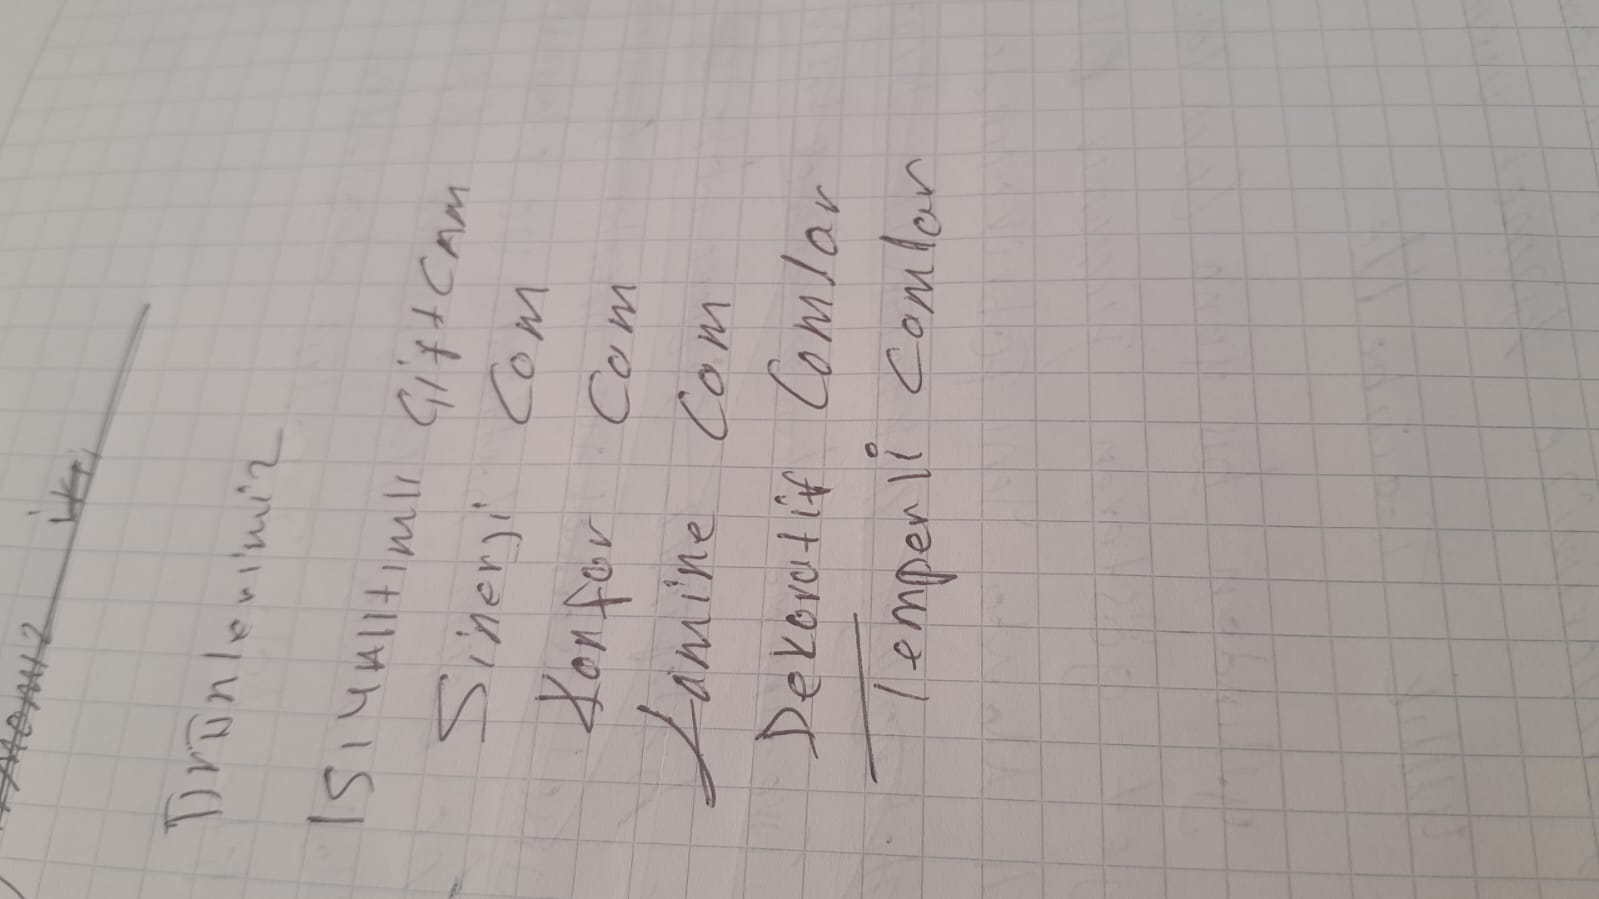 Ürünlerimiz
Isıyalıtımlı Çift Cam
Sinerji Cam
Konfor Cam
Lamine Cam
Dekoratif Camlar
Temperli Camlar